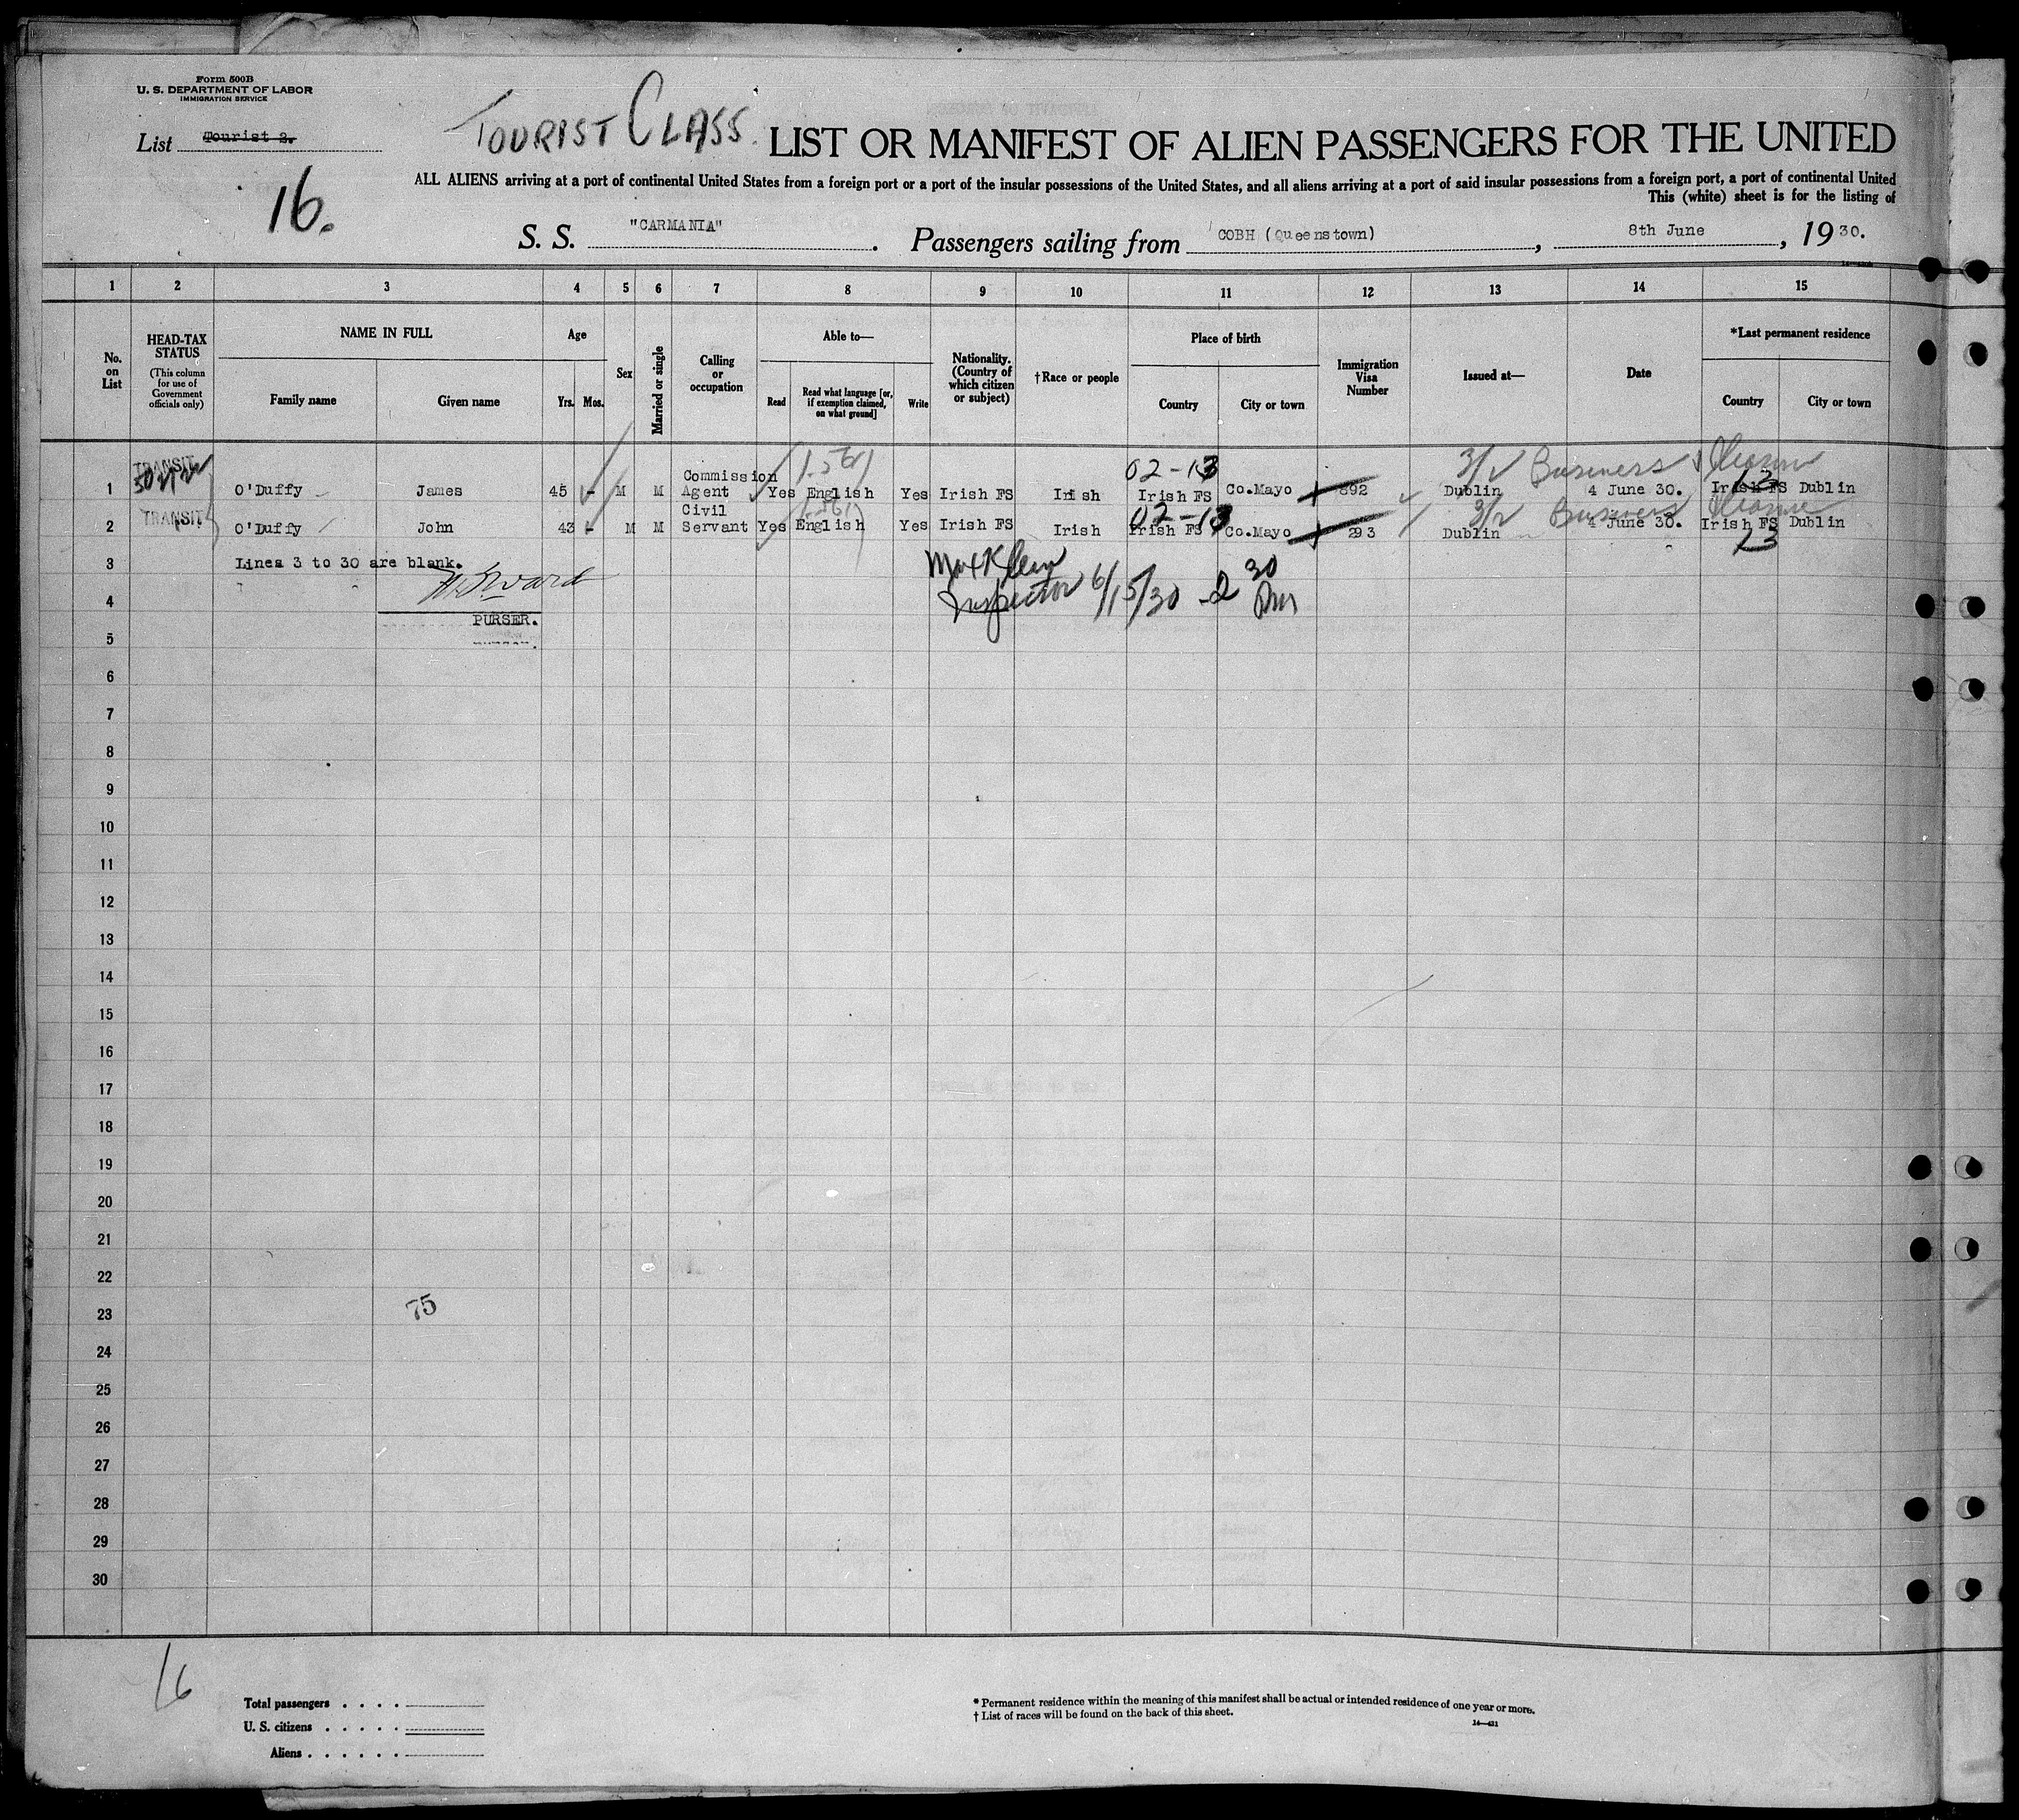 Form 500B
U. S. DEPARTMENT OF LABOR
IMMIGRATION SERVICE
List Tourist 2.
16.
TOURIST CLASS. LIST OR MANIFEST OF ALIEN PASSENGERS FOR THE UNITED
ALL ALIENS arriving at a port of continental United States from a foreign port or a port of the insular possessions of the United States, and all aliens arriving at a port of said insular possessions from a foreign port, a port of continental United
This (white) sheet is for the listing of
S. S. "CARMANIA". Passengers sailing from COBH (Queenstown), 8th June, 1930.
1 2 3 4 5 6 7 8 9 10 11 12 13 14 15
No. on List
HEAD-TAX STATUS
(This column for use of Government officials only)
NAME IN FULL
Family name
Given name
Age
Yrs. Mos.
Sex
Married or single
Calling or occupation
Able to—
Read
Read what language [or, if exemption claimed, on what ground]
Write
Nationality. (Country of which citizen or subject)
†Race or people
Place of birth
Country
City or town
Immigration Visa Number
Issued at—
Date
*Last permanent residence
Country
City or town
TRANSIT 02-13 3/2 Business
1 O'Duffy James 45 - M M Commission Agent Yes English Yes Irish FS Irish Irish FS Co.Mayo 892 Dublin 4 June 30. Irish FS Dublin
TRANSIT 02-13 3/2 Business
2 O'Duffy John 43 - M M Civil Servant Yes English Yes Irish FS Irish Irish FS Co.Mayo 293 Dublin 4 June 30. Irish FS Dublin
3 Lines 3 to 30 are blank.
Max Klein
Inspector 6/15/30 -2 30 Pm
4
PURSER.
5
6
7
8
9
10
11
12
13
14
15
16
17
18
19
20
21
22
23 75
24
25
26
27
28
29
30
16
Total passengers . . . .
U. S. citizens . . . . .
Aliens . . . . . .
* Permanent residence within the meaning of this manifest shall be actual or intended residence of one year or more.
† List of races will be found on the back of this sheet.
14—421